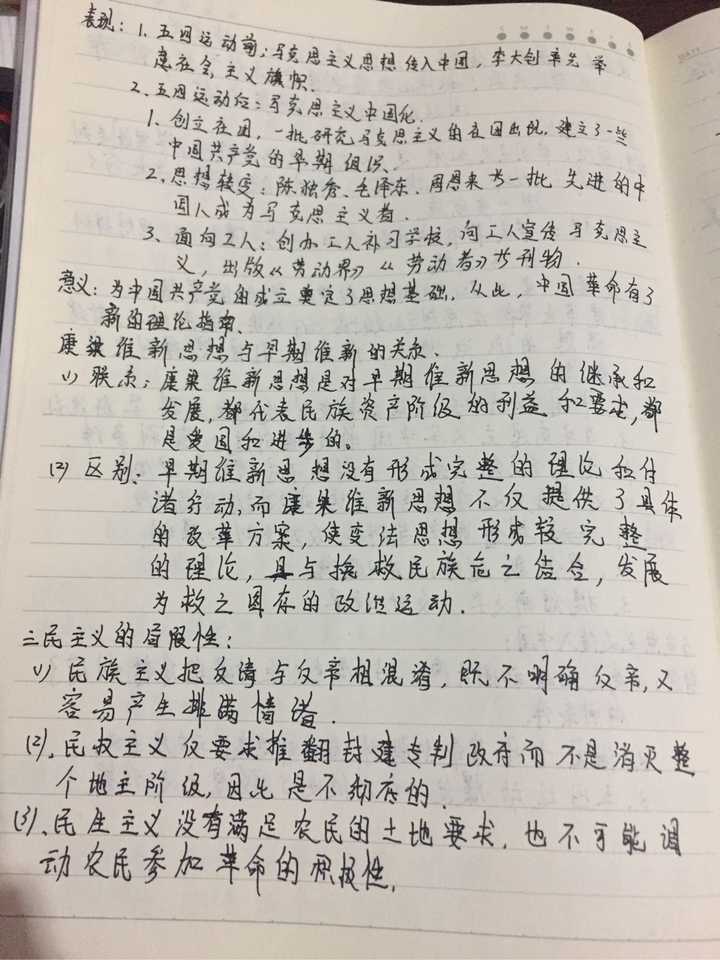 表现：1. 五四运动前：马克思主义思想传入中国，李大钊率先举
起社会主义旗帜.
2. 五四运动后：马克思主义中国化.
1. 创立社团，一批研究马克思主义的社团出现，建立了一些
中国共产党的早期组织.
2. 思想转变：陈独秀、毛泽东、周恩来等一批先进的中
国人成为马克思主义者.
3、面向工人：创办工人补习学校，向工人宣传马克思主
义，出版《劳动界》《劳动者》等刊物.
意义：为中国共产党的成立奠定了思想基础，从此，中国革命有了
新的理论指南、
康梁维新思想与早期维新的关系.
(1) 联系：康梁维新思想是对早期维新思想的继承和
发展，都代表民族资产阶级的利益和要求，都
是爱国和进步的。
(2) 区别：早期维新思想没有形成完整的理论和付
诸行动，而康梁维新思想不仅提供了具体
的改革方案，使变法思想形成较完整
的理论，且与挽救民族危亡结合，发展
为救亡图存的政治运动.
三民主义的局限性：
(1) 民族主义把反满与反帝相混淆，既不明确反帝，又
容易产生排满情绪.
(2)、民权主义仅要求推翻封建专制政府而不是消灭整
个地主阶级，因此是不彻底的.
(3)、民生主义没有满足农民的土地要求，也不可能调
动农民参加革命的积极性.